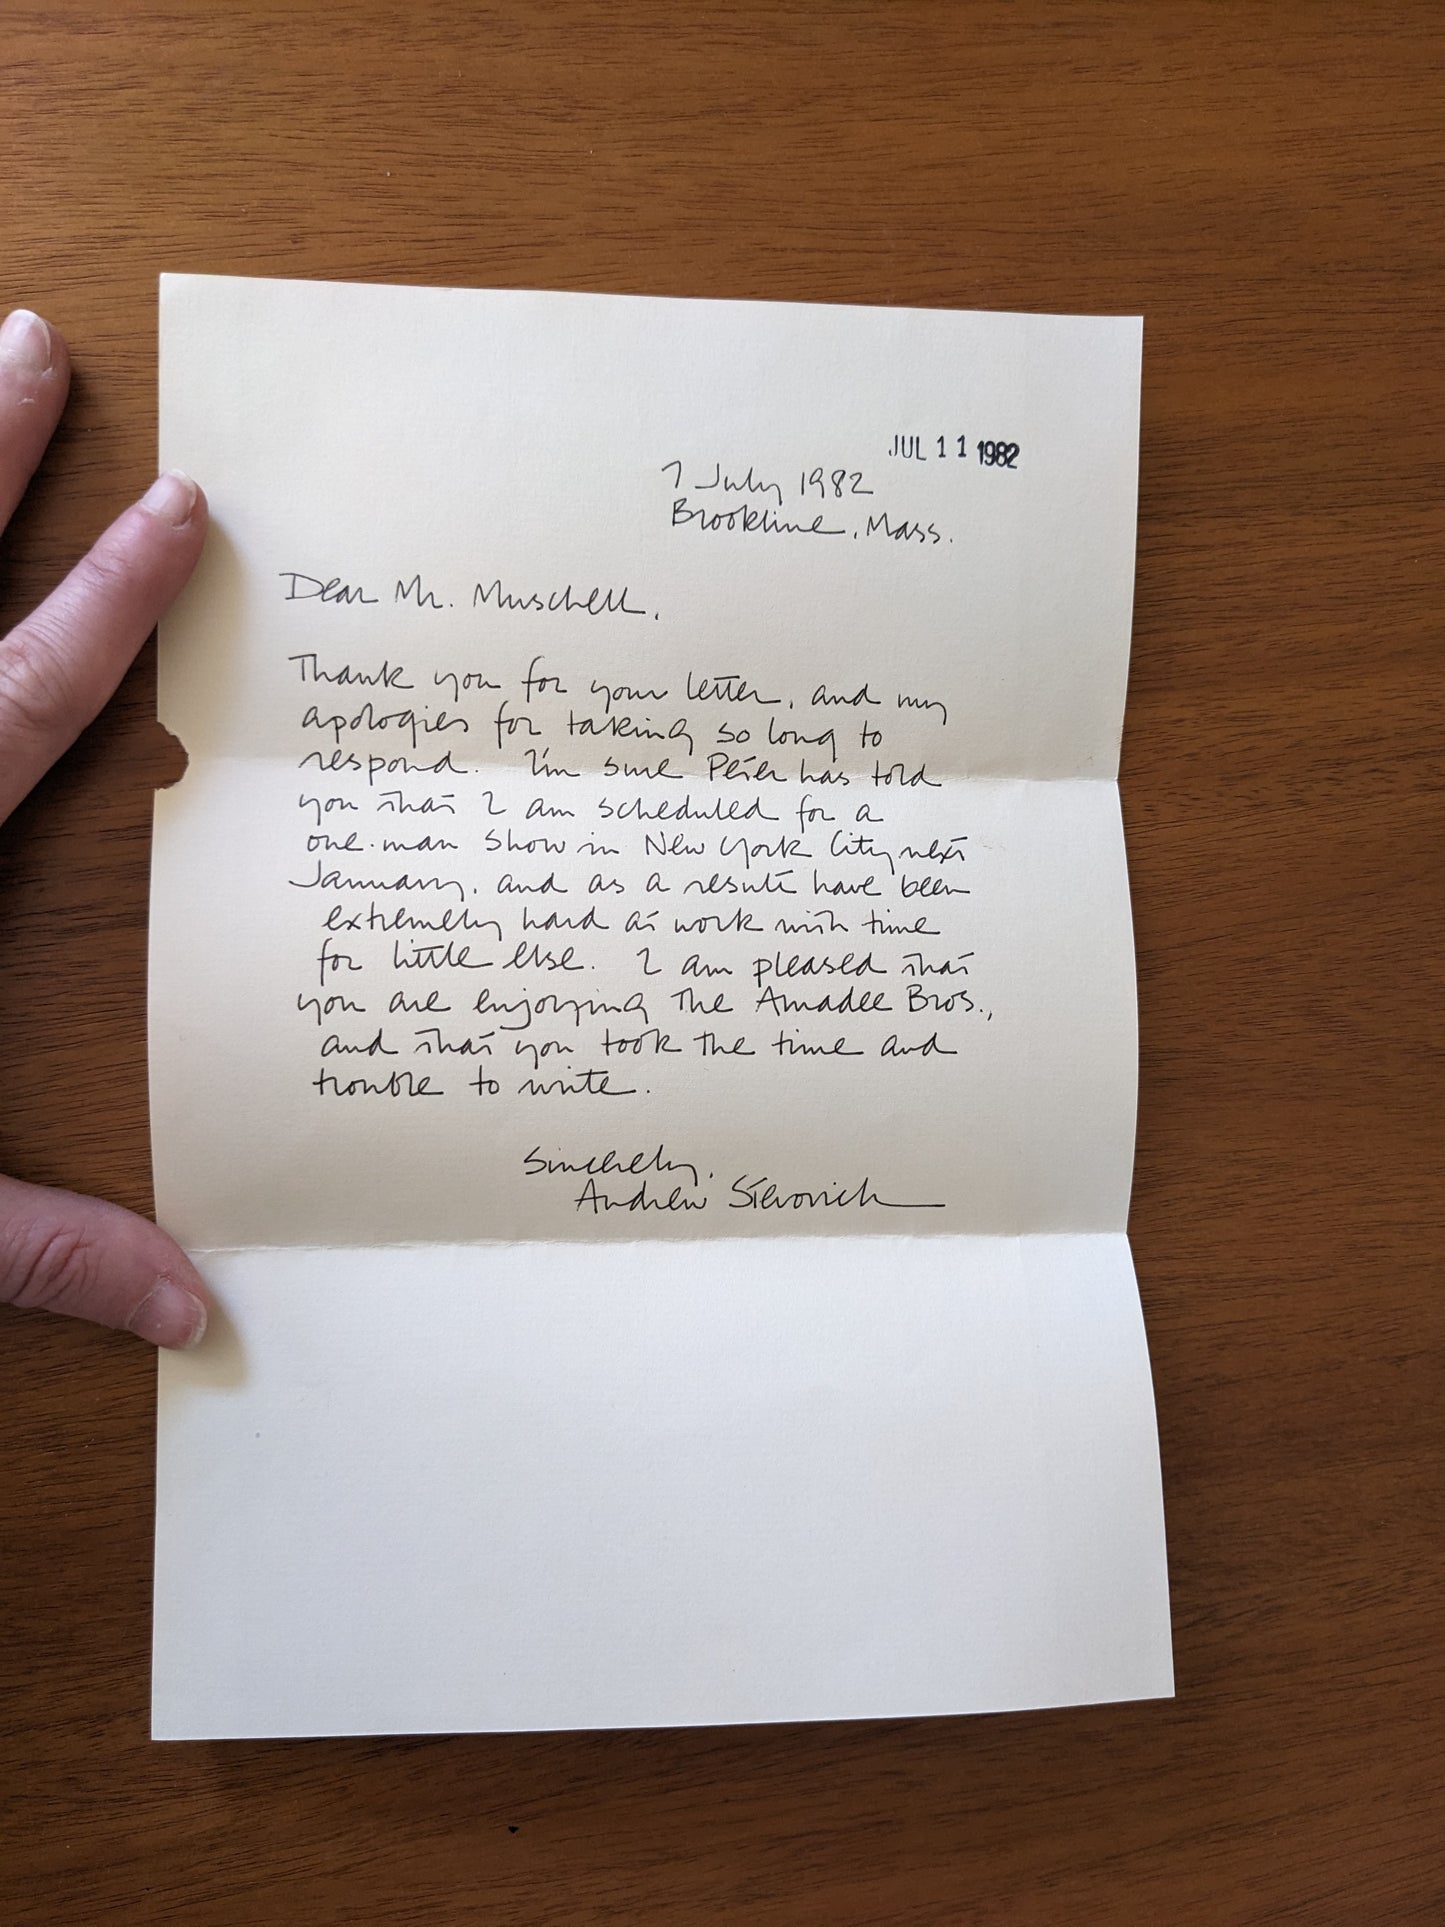 JUL 11 1982
7 July 1982
Brookline, Mass.
Dear Mr. Muschell,
Thank you for your letter, and my
apologies for taking so long to
respond. I'm sure Peter has told
you that I am scheduled for a
one-man show in New York City next
January, and as a result have been
extremely hard at work with time
for little else. I am pleased that
you are enjoying The Amadee Bros.,
and that you took the time and
trouble to write.
Sincerely,
Andrew Stevovich